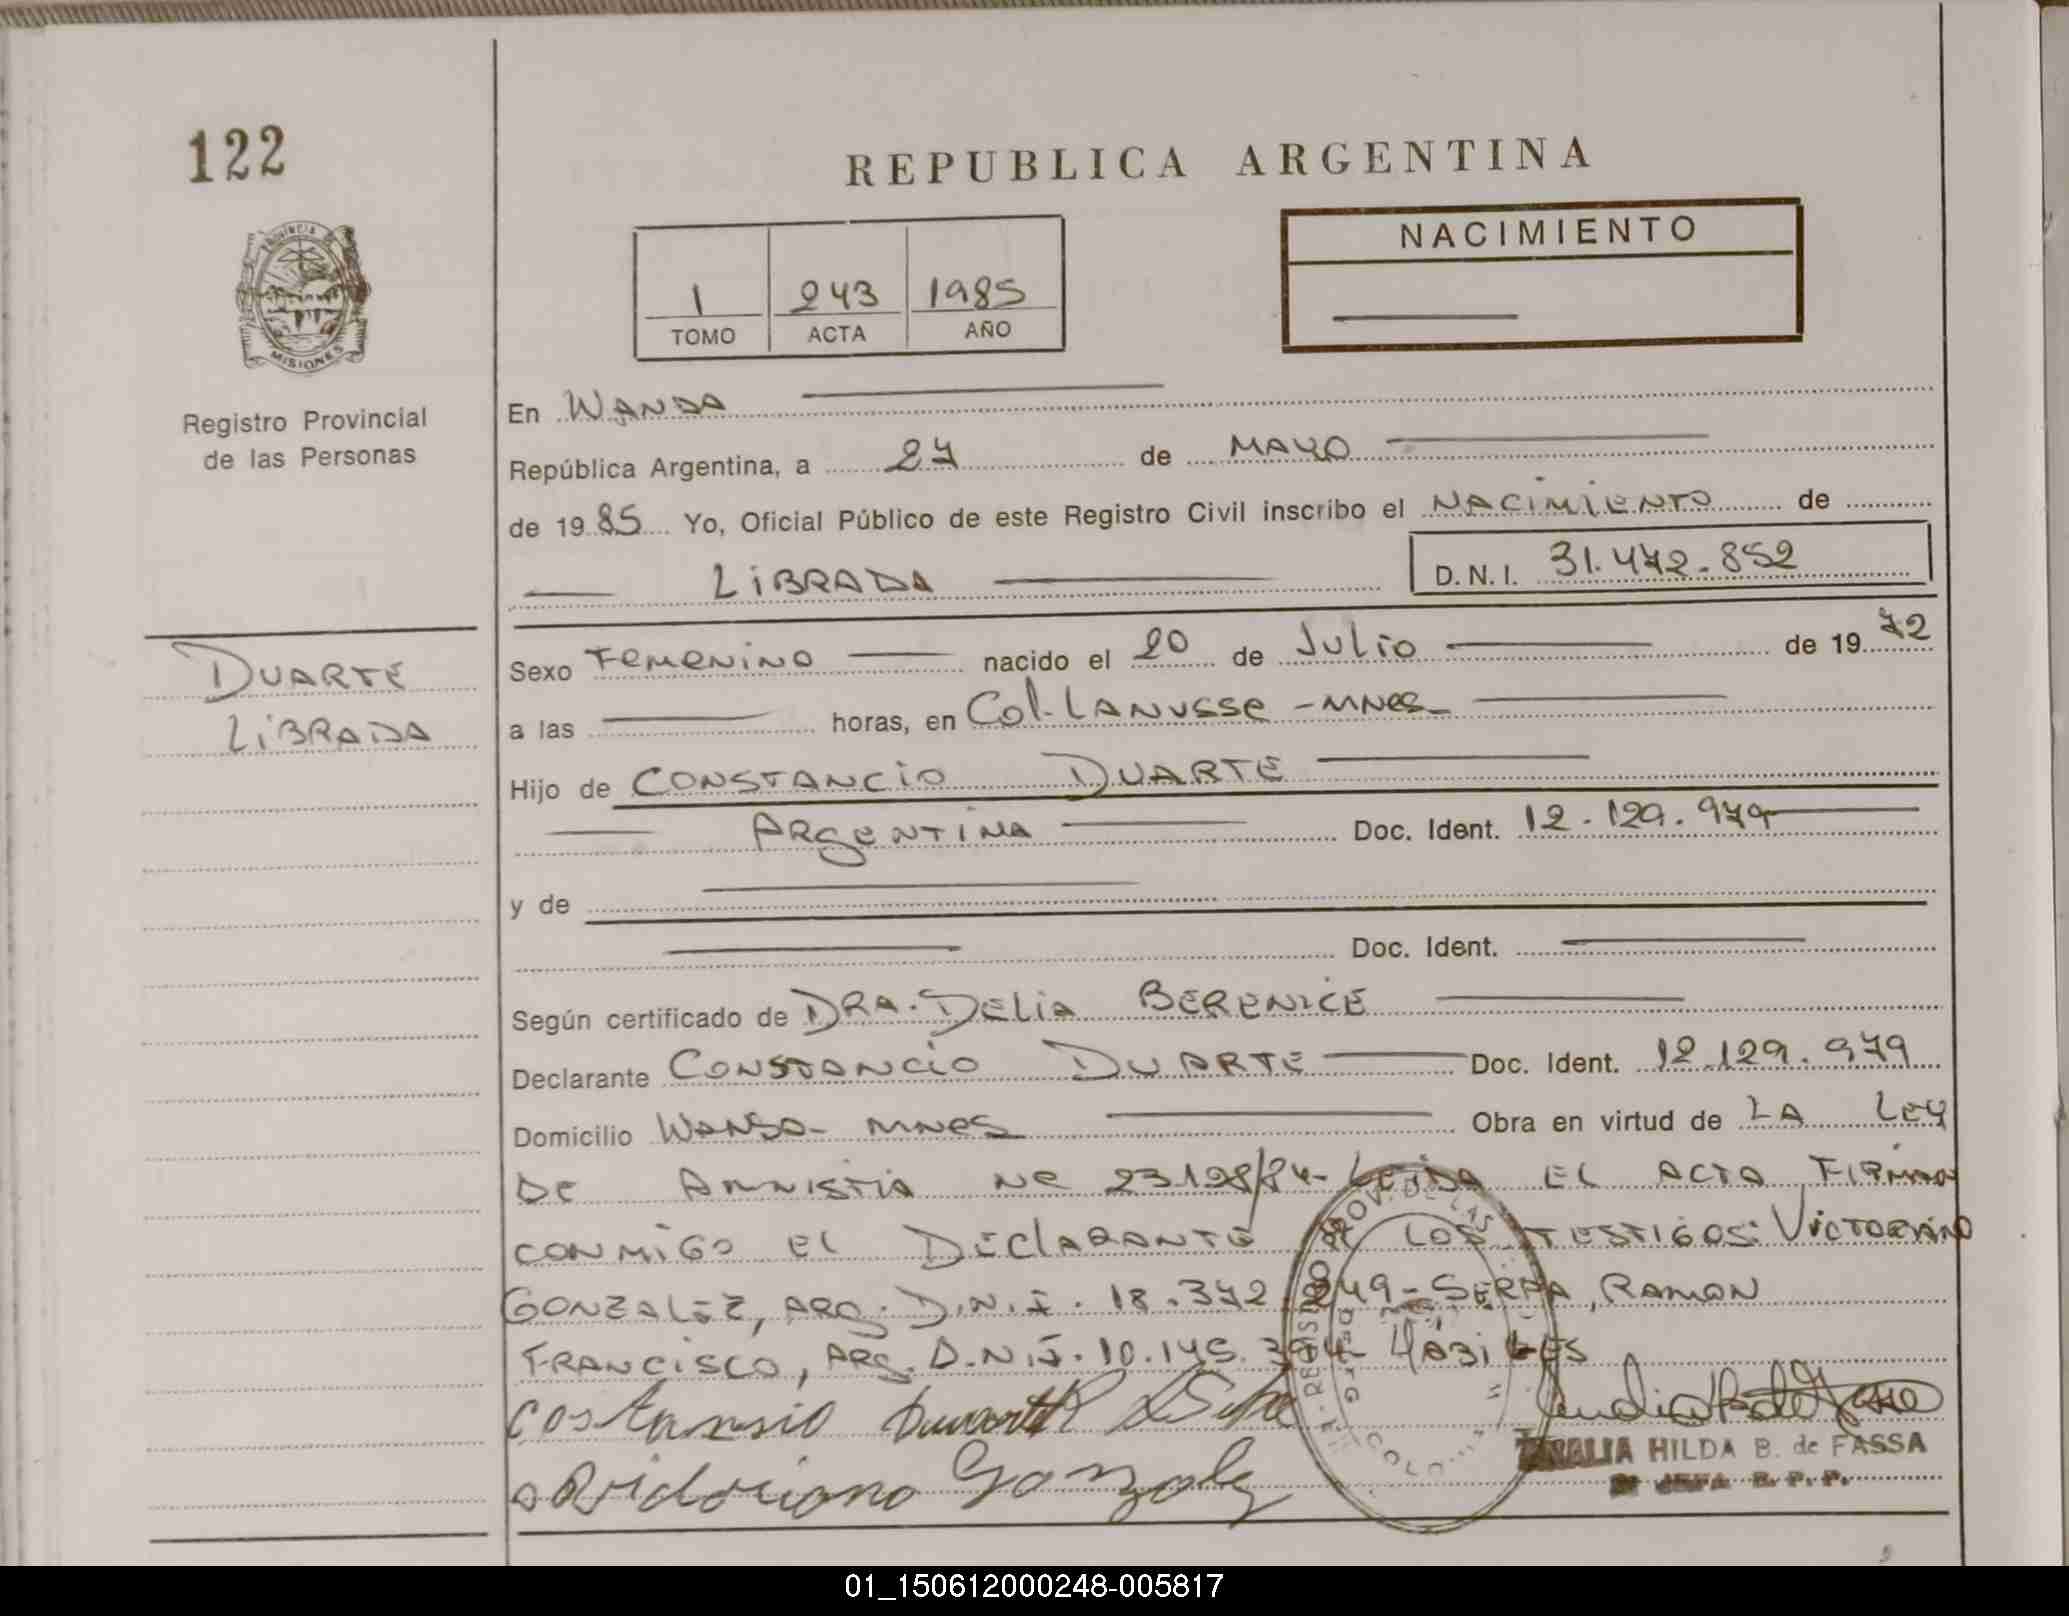 122
REPUBLICA ARGENTINA
NACIMIENTO
1 243 1985
TOMO ACTA AÑO
PROVINCIA DE
MISIONES
Registro Provincial
de las Personas
En WANDA
República Argentina, a 27 de MAYO
de 1985 Yo, Oficial Público de este Registro Civil inscribo el NACIMIENTO de
LIBRADA D.N.I. 31.472.852
DUARTE
LIBRADA
Sexo FEMENINO nacido el 20 de JULIO de 1972
a las horas, en Col. LANUSSE - MNES
Hijo de CONSTANCIO DUARTE
ARGENTINA Doc. Ident. 12.129.979
y de
Doc. Ident.
Según certificado de DRA. DELIA BERENICE
Declarante CONSTANCIO DUARTE Doc. Ident. 12.129.979
Domicilio WANDA - MNES Obra en virtud de LA LEY
DE AMNISTIA Nº 23128/84 - LEIDA EL ACTA FIRMAN
CONMIGO EL DECLARANTE LOS TESTIGOS: VICTORIANO
GONZALEZ, ARG. D.N.I. 18.372.249 - SERPA, RAMON
FRANCISCO, ARG. D.N.I. 10.145. HÁBILES
Costansio Duarte
Gonzalez
HILDA B. de FASSA
JEFA R.P.P.
01_150612000248-005817